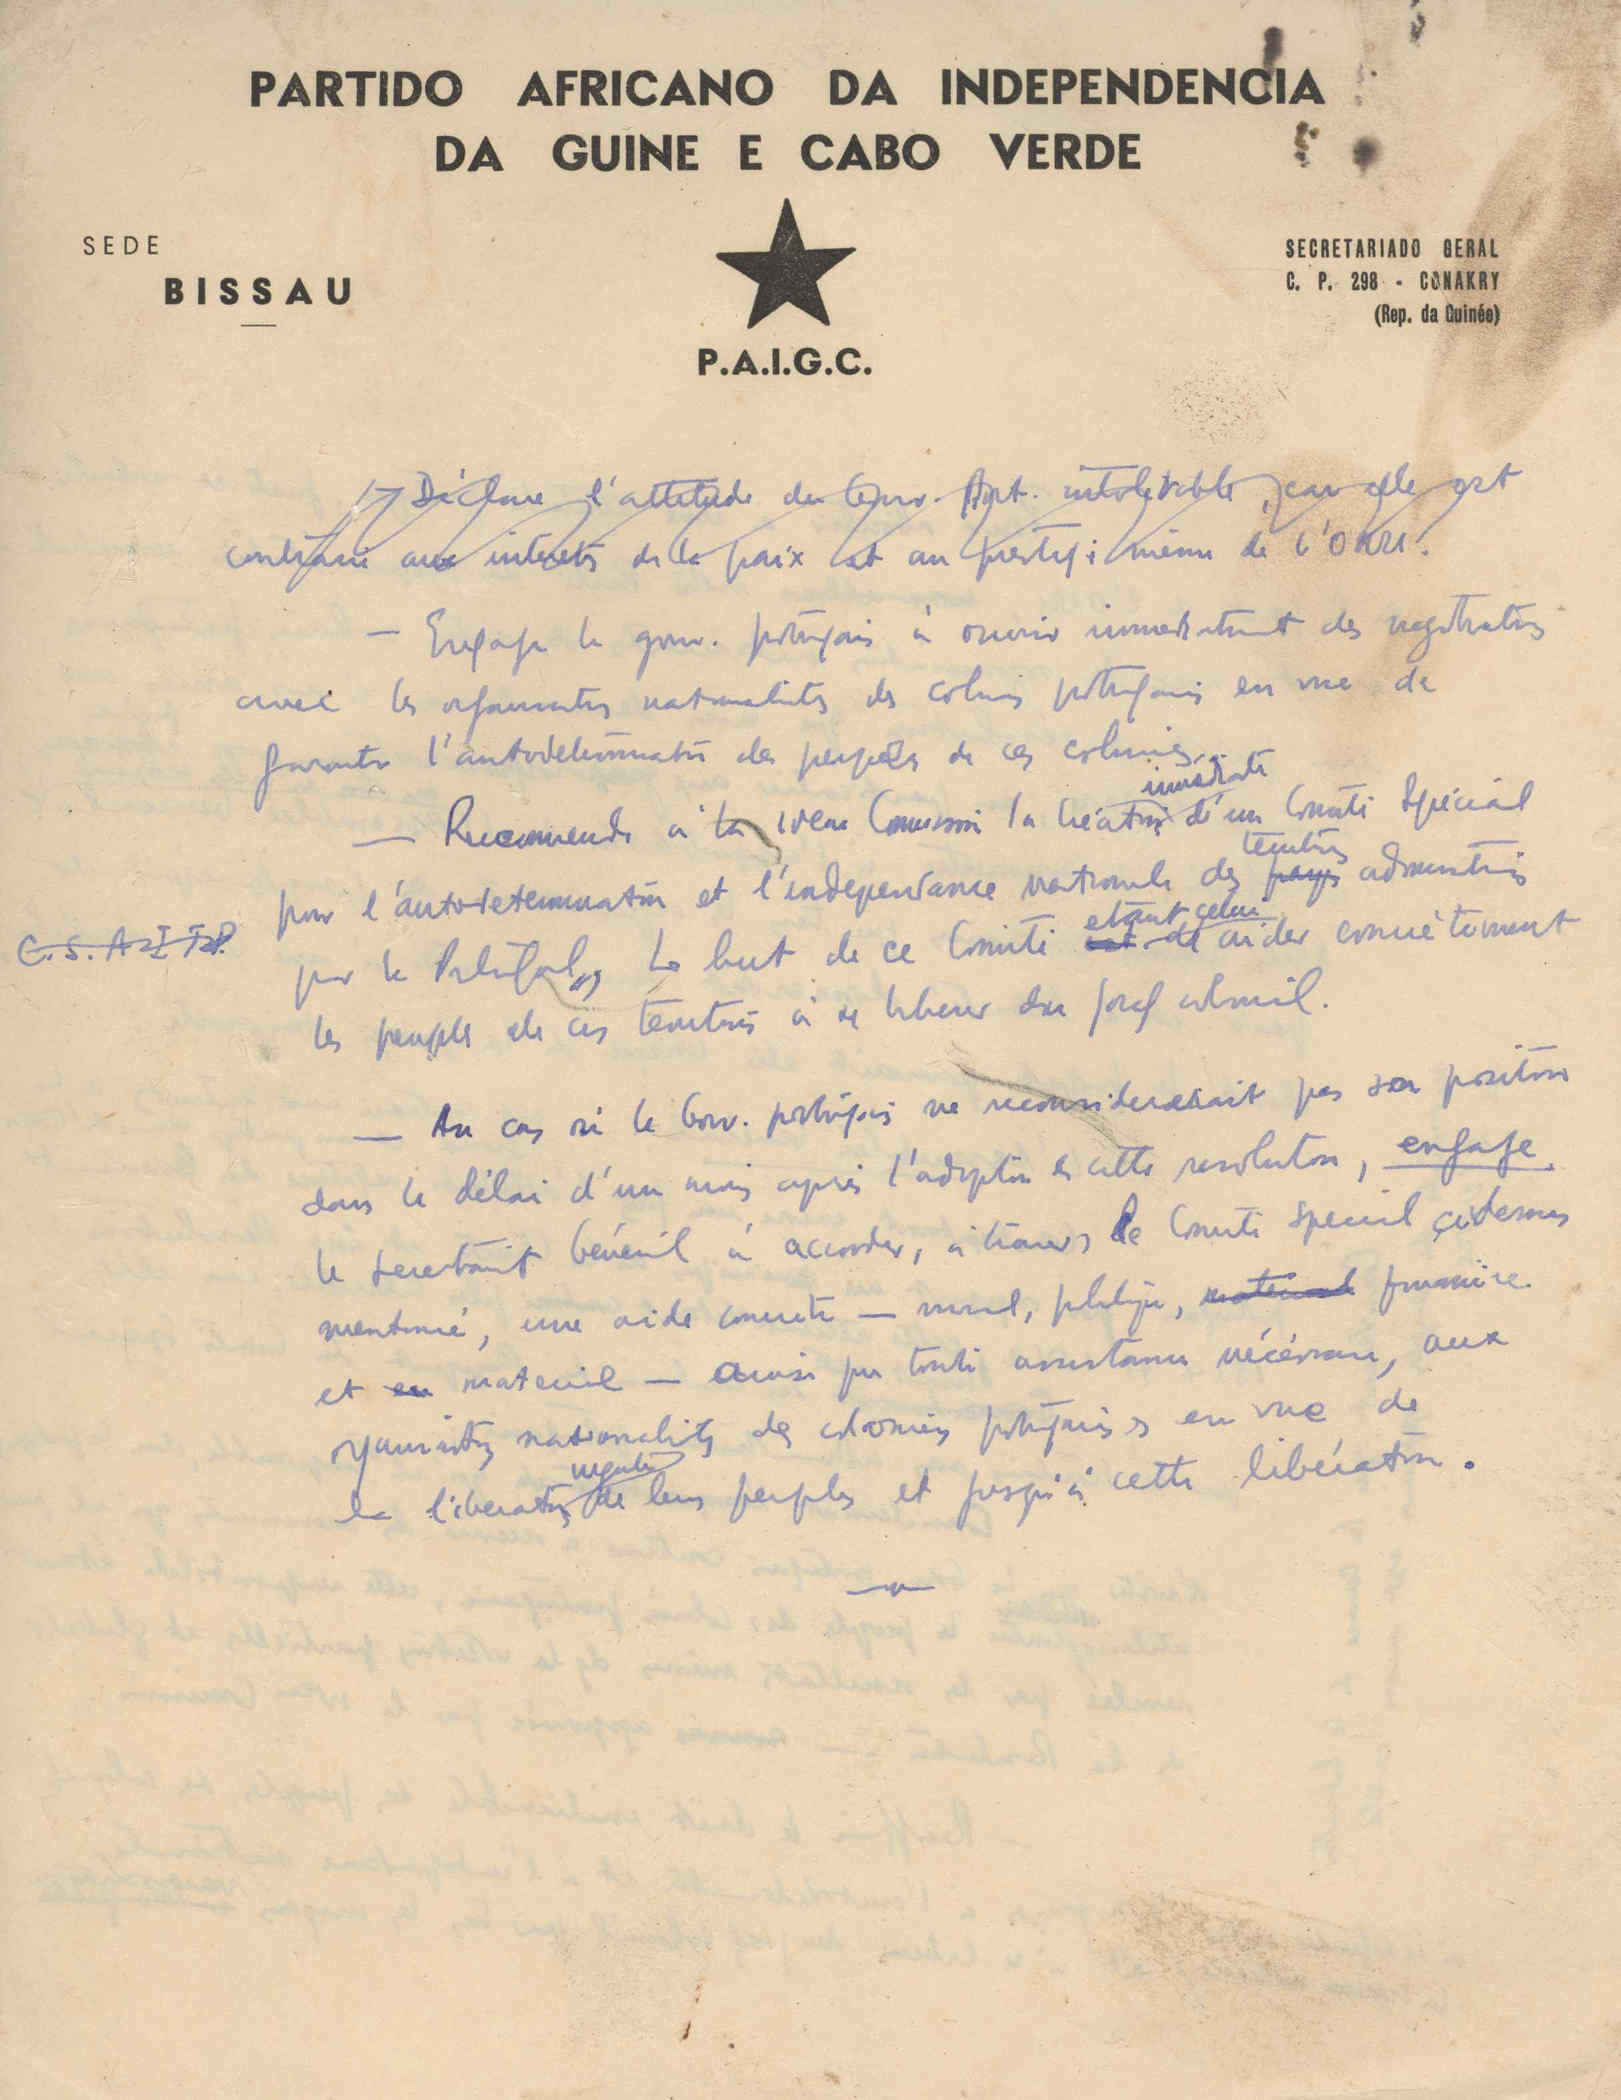 PARTIDO AFRICANO DA INDEPENDENCIA
DA GUINE E CABO VERDE
SEDE
BISSAU
P.A.I.G.C.
SECRETARIADO GERAL
C. P. 298 - CONAKRY
(Rep. da Guinée)
Déclare l'attitude du Gouv. Port. intolérable, car elle est
contraire aux intérêts de la paix et au prestige même de l'ONU.
— Engage le gouv. portugais à ouvrir immediatement des negotiations
avec les organisations nationalistes des colonies portugaises en vue de
garantir l'autodetermination des peuples de ces colonies.
immédiate
— Recommende à la IVème Commission la création d'un Comité Spécial
territoires
pour l'autodetermination et l'independance nationale des pays administrés
etant celui
C.S.A.I.T.P.
par le Portugal, Le but de ce Comité est de aider concrètement
les peuples de ces territoires à se liberer du joug colonial.
— Au cas où le Gouv. portugais ne reconsidererait pas sa position
dans le délai d'un mois après l'adoption de cette resolution, engage
le secretariat Général à accorder, à travers le Comité special ci-dessus
mentionné, une aide concrète — moral, politique, material financière
et en material — ainsi que toute assistance nécéssaire, aux
organisations nationalistes des colonies portugaises en vue de
la liberation de leurs peuples et jusqu'à cette libération.